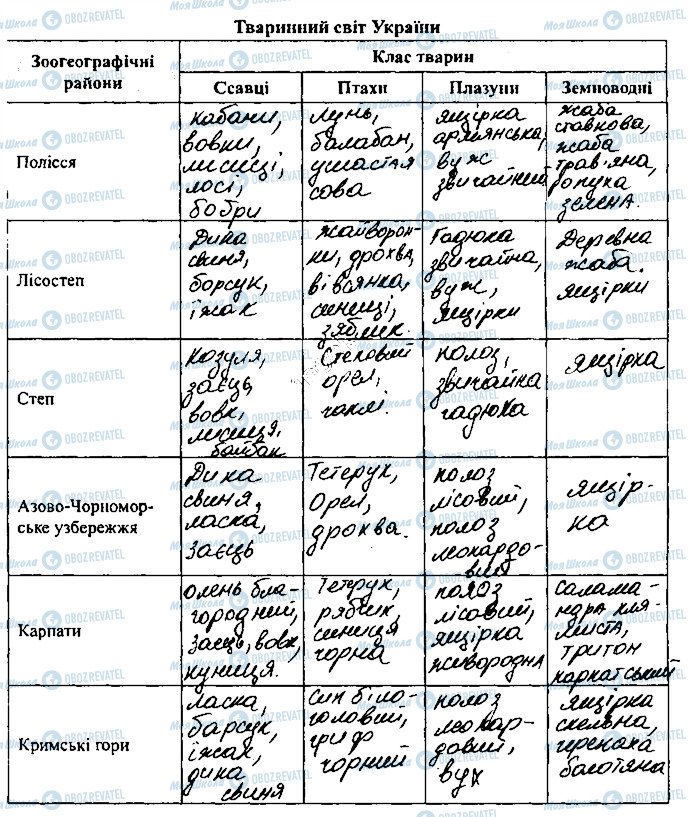 Тваринний світ України
Зоогеографічні райони
Клас тварин
Ссавці Птахи Плазуни Земноводні
Полісся
кабани,
вовки,
лисиці,
лосі,
бобри
лунь,
балабан,
ушастая
сова
ящірка
вуж
звичайний
жаба
ставкова,
жаба
трав'яна,
ропуха
зелена.
Лісостеп
Дика
свиня,
борсук,
їжак
жайворон-
ки, дрохва,
вівсянка,
синиці,
зяблик.
Гадюка
звичайна,
вуж,
ящірки
Деревна
жаба.
ящірки
Степ
Козуля,
заєць,
вовк,
лисиця,
байбак
Степовий
орел,
полоз,
звичайна
гадюка
ящірка
Азово-Чорномор-
ське узбережжя
Дика
свиня,
ласка,
заєць
Тетерук,
Орел,
дрохва.
полоз
лісовий,
полоз
леопардо-
вий
ящір-
ка
Карпати
олень бла-
городний,
заєць, вовк,
куниця.
Тетерук,
рябчик,
синиця
чорна
полоз
лісовий,
ящірка
живородна
салама-
ндра пля-
миста,
тритон
карпатський
Кримські гори
ласка,
барсук,
їжак,
дика
свиня
сип біло-
головий,
гриф
чорний
полоз
леопар-
довий,
вуж
ящірка
скельна,
черепаха
болотяна